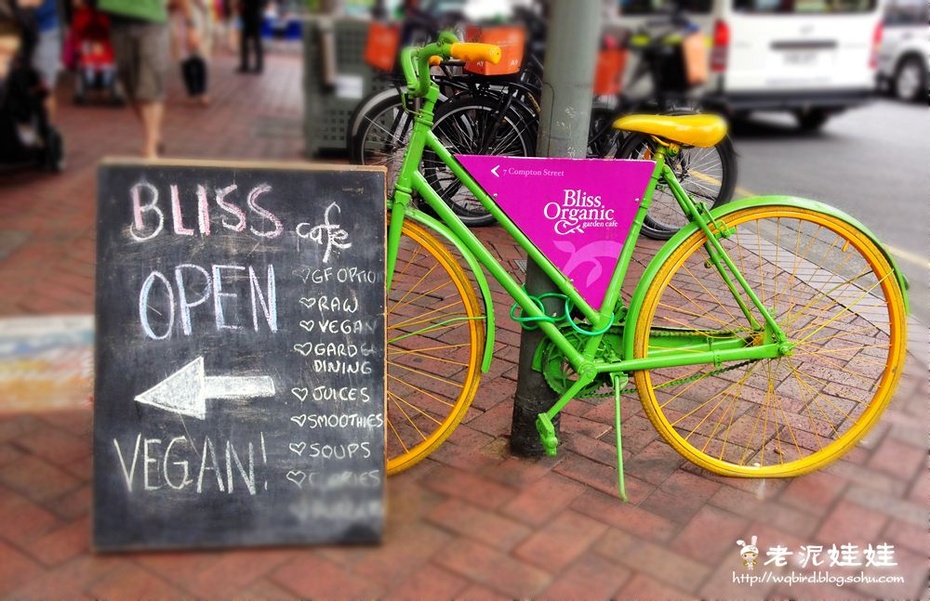 BLISS
café
OPEN
VEGAN!
♡GF OPTIO
♡RAW
♡VEGAN
♡GARDE
DINING
♡JUICES
♡SMOOTHIES
♡SOUPS
< 7 Compton Street
Bliss
Organic
garden cafe
老泥娃娃
http://wqbird.blog.sohu.com